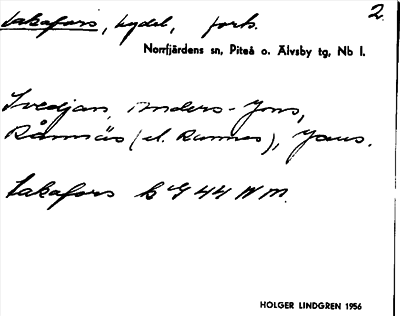 Lakafors, bydel, forts. 2.
Norrfjärdens sn, Piteå o. Älvsby tg, Nb l.
Svedjan, Anders-Jons,
Rånnäs (el. Rannes), Jans.
Lakafors
HOLGER LINDGREN 1956